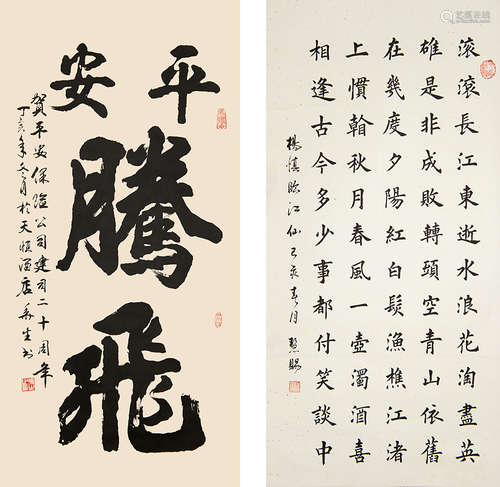 平安
騰
飛
賀平安保險公司建司二十周年
丁亥年冬月於天順酒店
滾滾長江東逝水浪花淘盡英
雄是非成敗轉頭空青山依舊
在幾度夕陽紅白髮漁樵江渚
上慣翰秋月春風一壺濁酒喜
相逢古今多少事都付笑談中
楊慎臨江仙己亥春月